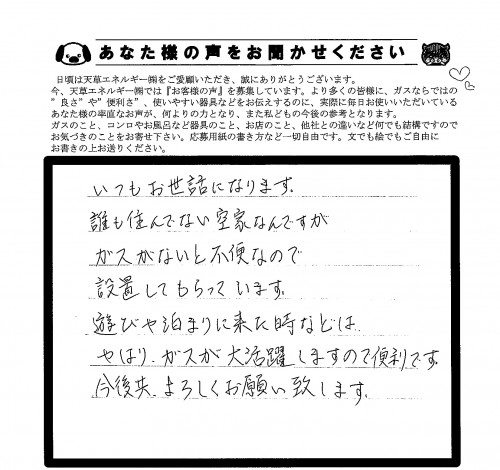 あなた様の声をお聞かせください
日頃は天草エネルギー㈱をご愛顧いただき、誠にありがとうございます。
今、天草エネルギー㈱では『お客様の声』を募集しています。より多くの皆様に、ガスならではの
”良さ”や”便利さ”、使いやすい器具などをお伝えするのに、実際に毎日お使いいただいている
あなた様の率直なお声が、何よりの力となり、また私どもの今後の参考となります。
ガスのこと、コンロやお風呂など器具のこと、お店のこと、他社との違いなど何でも結構ですので
お気づきのことをお寄せ下さい。応募用紙の書き方など一切自由です。文でも絵でもご自由に
お書きの上お送りください。
いつもお世話になります。
誰も住んでない空家なんですが
ガスがないと不便なので
設置してもらっています。
遊びや泊まりに来た時などは
やはり、ガスが大活躍しますので便利です。
今後共よろしくお願い致します。